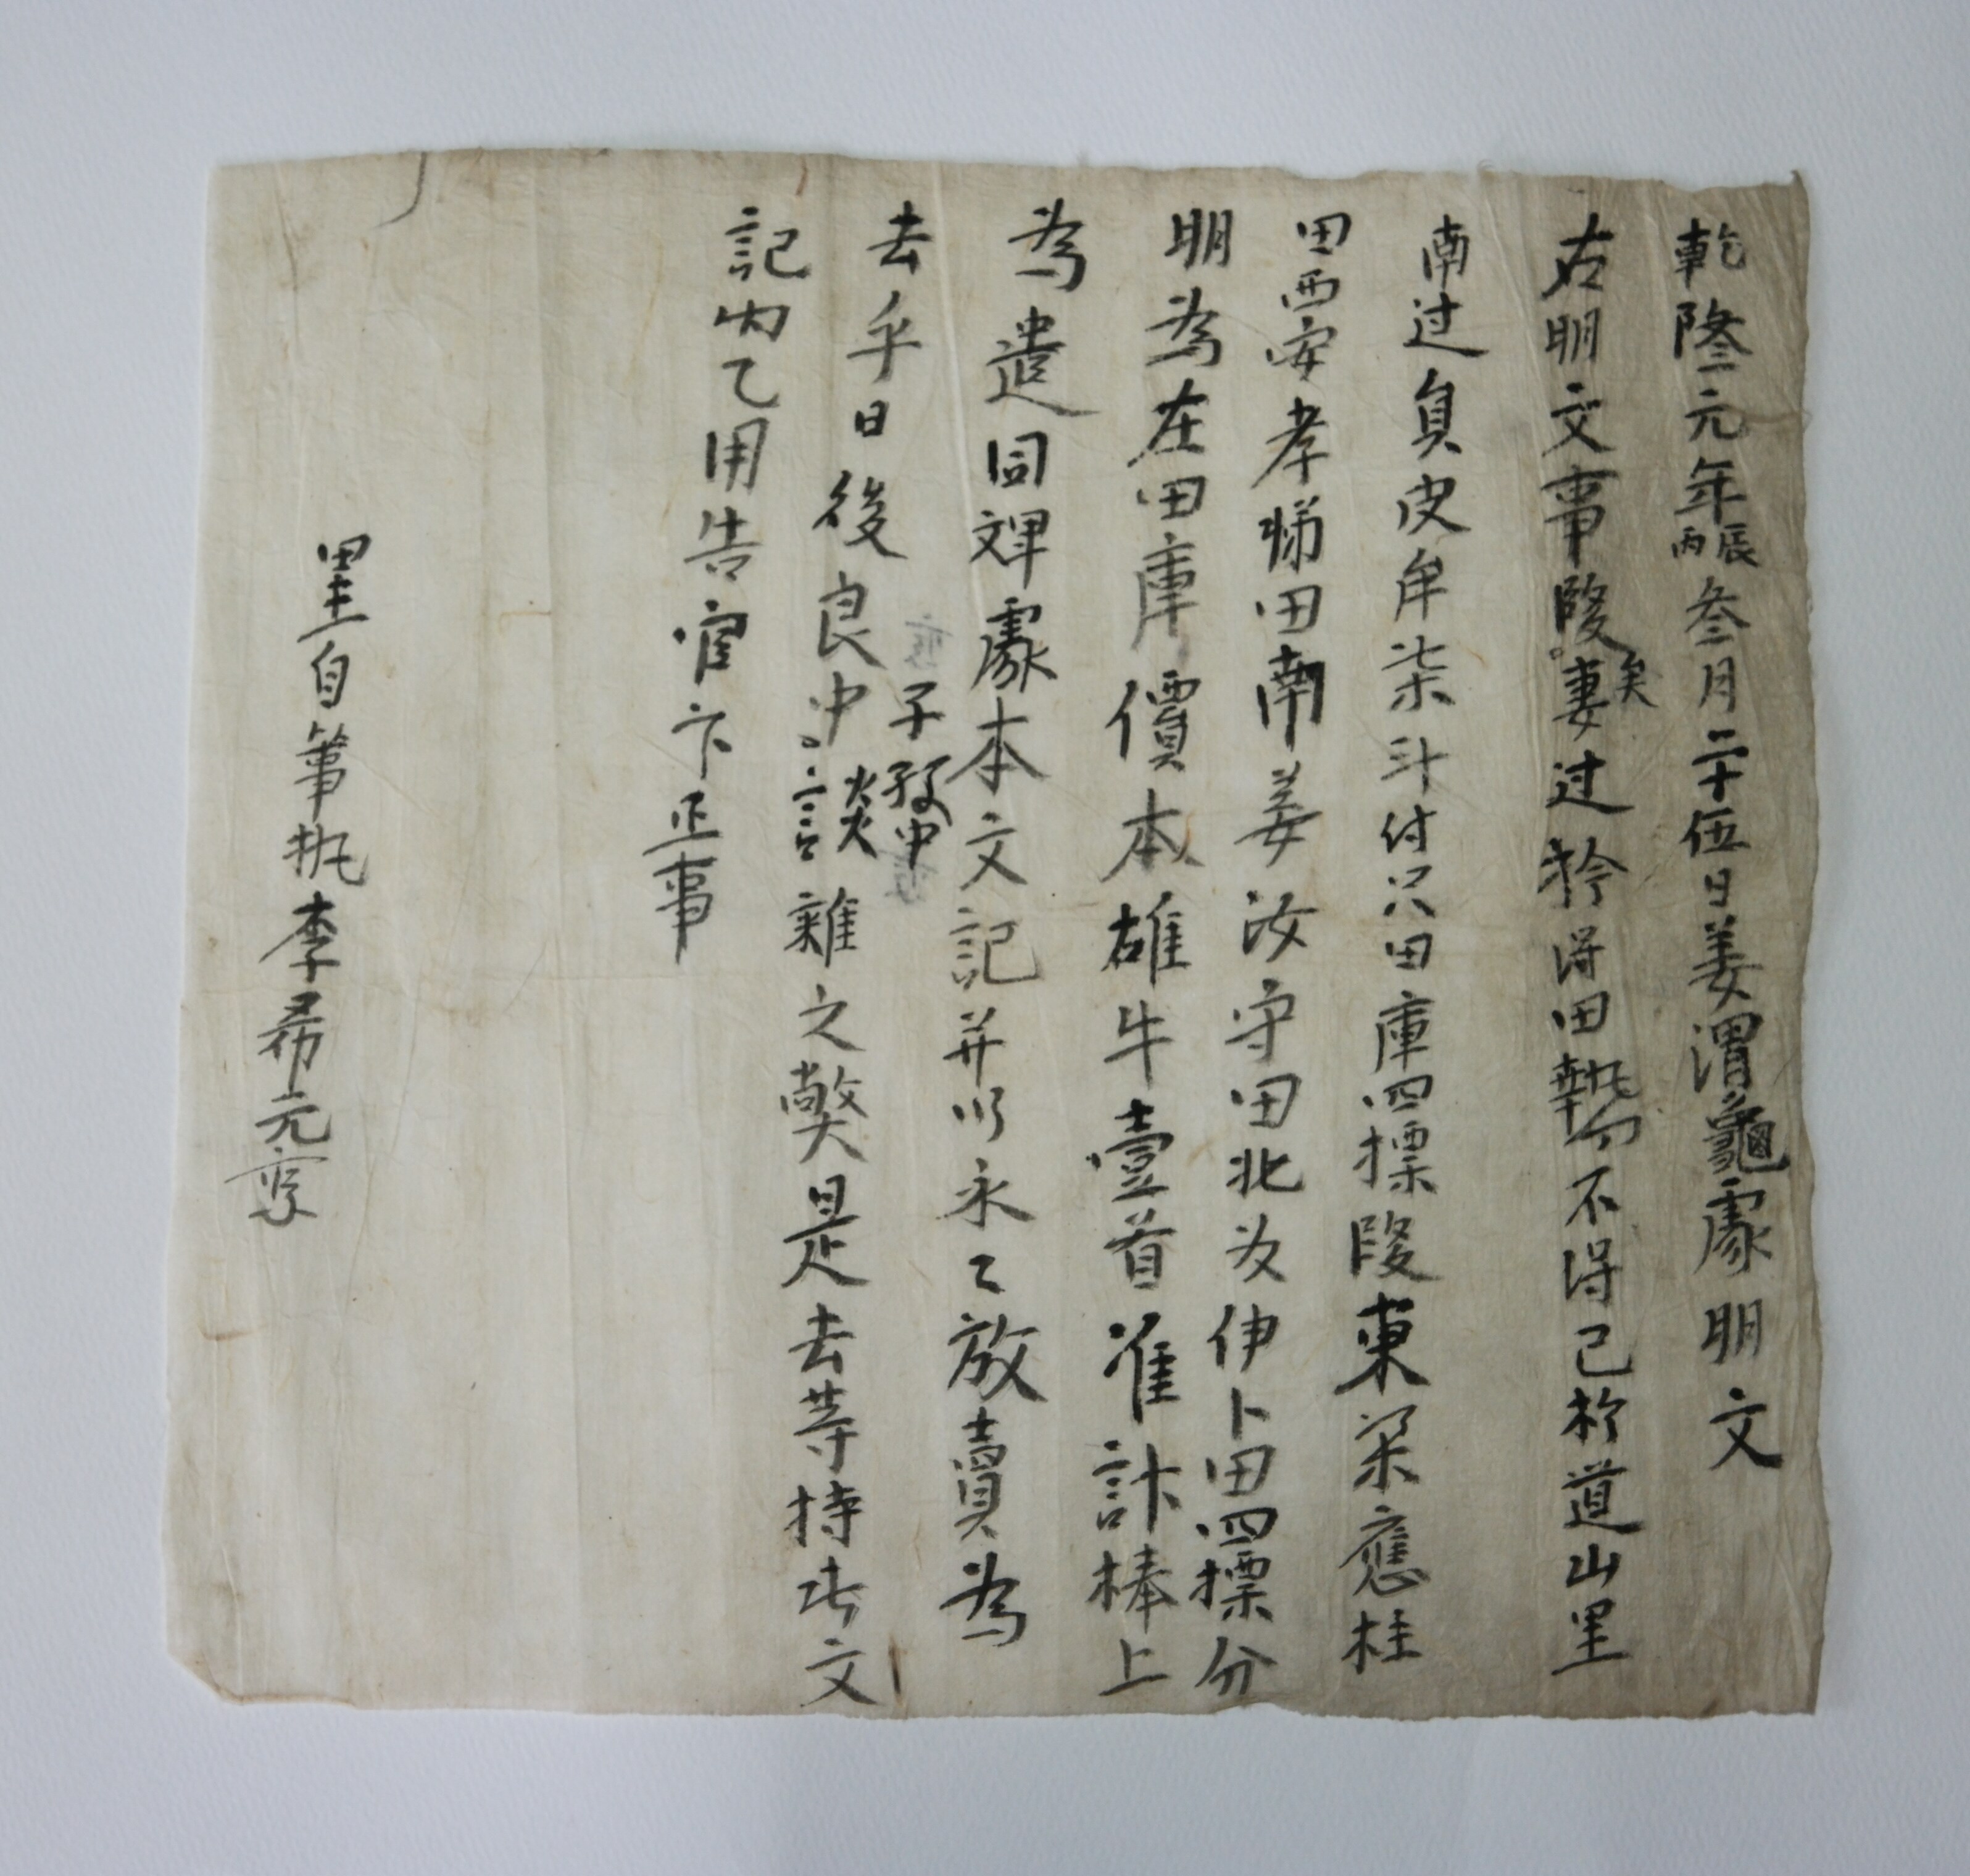 乾隆元年丙辰叁月二十伍日姜渭龜處明文
右明文事段矣妻过衿得田執勿不得已於道山里
南过員皮牟柒斗付只田庫四標段東梁應柱
田西安孝悌田南姜汝守田北汝伊卜田四標分
明為在田庫價本雄牛壹首准計棒上
為遣同畓處本文記并以永〻放賣為
去乎日後良中子孫中談雜之獘是去等持此文
記內乙用告官卞正事
畓主自筆執李希元